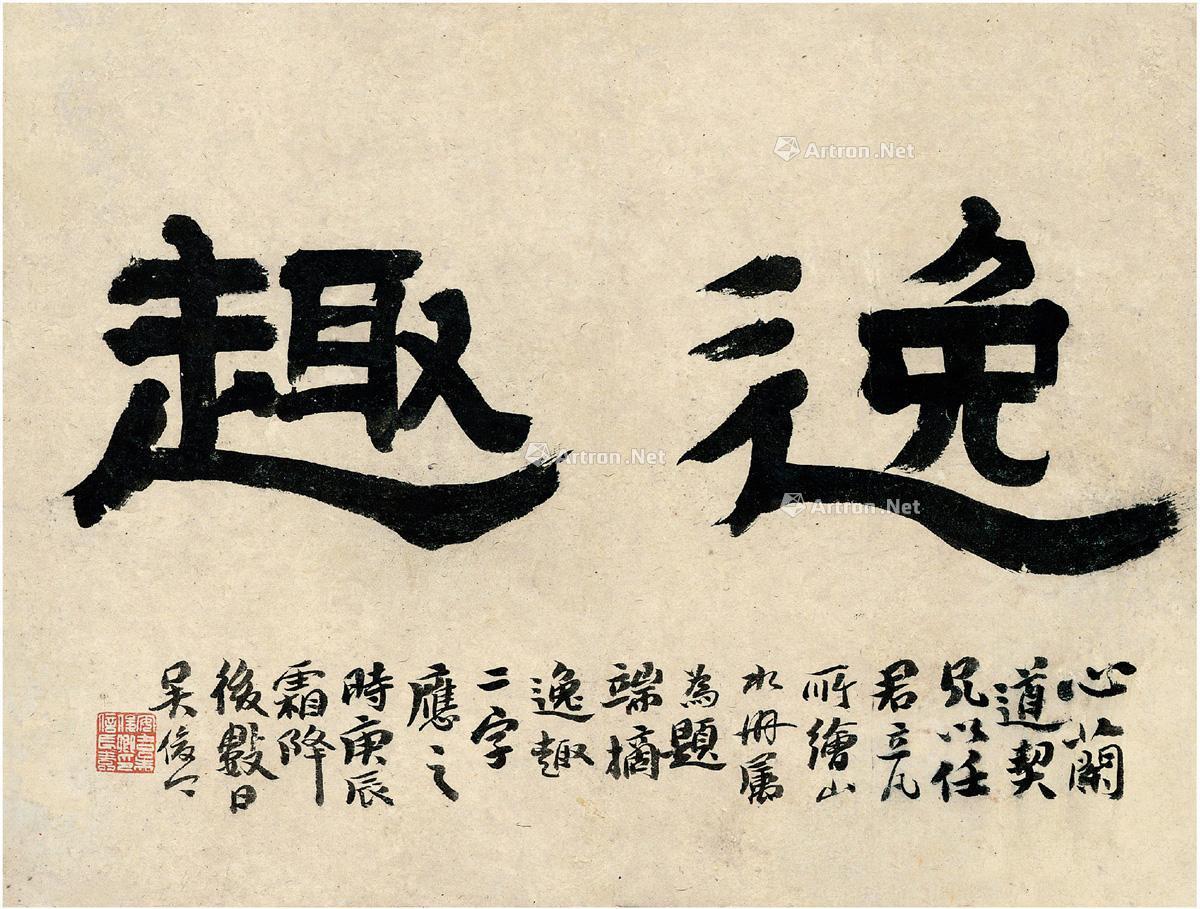 逸趣
心蘭
道契
兄以任
君立凡
所繪山
水冊屬
為題
端摘
逸趣
二字
應之
時庚辰
霜降
後數日
吳俊
Artron.Net
Artron.Net
Artron.Net